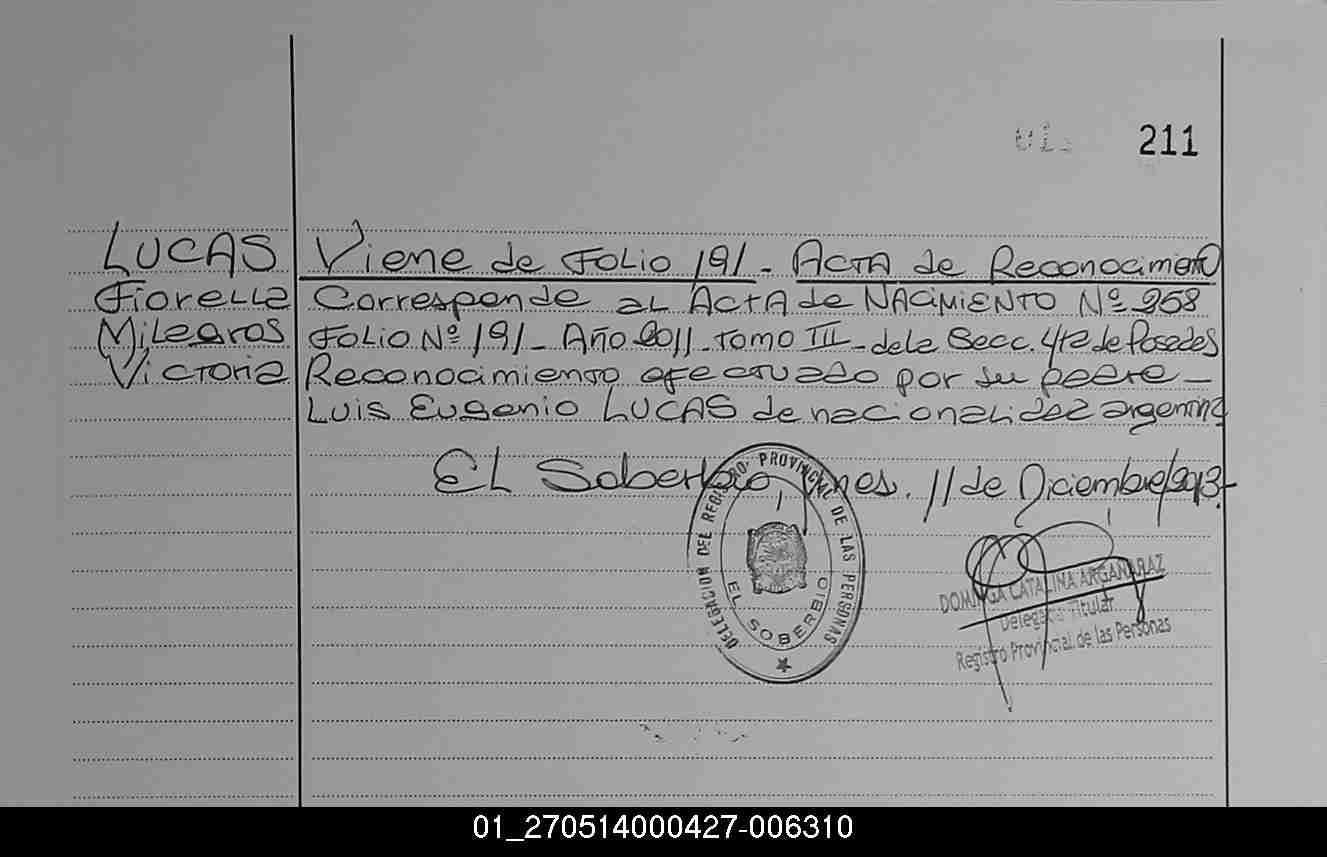 211
LUCAS Viene de Folio 191 - Acta de Reconocimiento
Fiorella Corresponde al Acta de NACIMIENTO Nº 258
Milagros Folio Nº 191 - Año 2011 - Tomo III - de la Secc. 4ta de Posadas
Victoria Reconocimiento efectuado por su padre -
Luis Eugenio LUCAS de nacionalidad argentina
El Soberbio, Mnes. 11 de Diciembre/2013.-
DELEGACION DEL REGISTRO PROVINCIAL DE LAS PERSONAS
EL SOBERBIO
DOMINGA CATALINA ARGAÑARAZ
Delegada Titular
Registro Provincial de las Personas
01_270514000427-006310